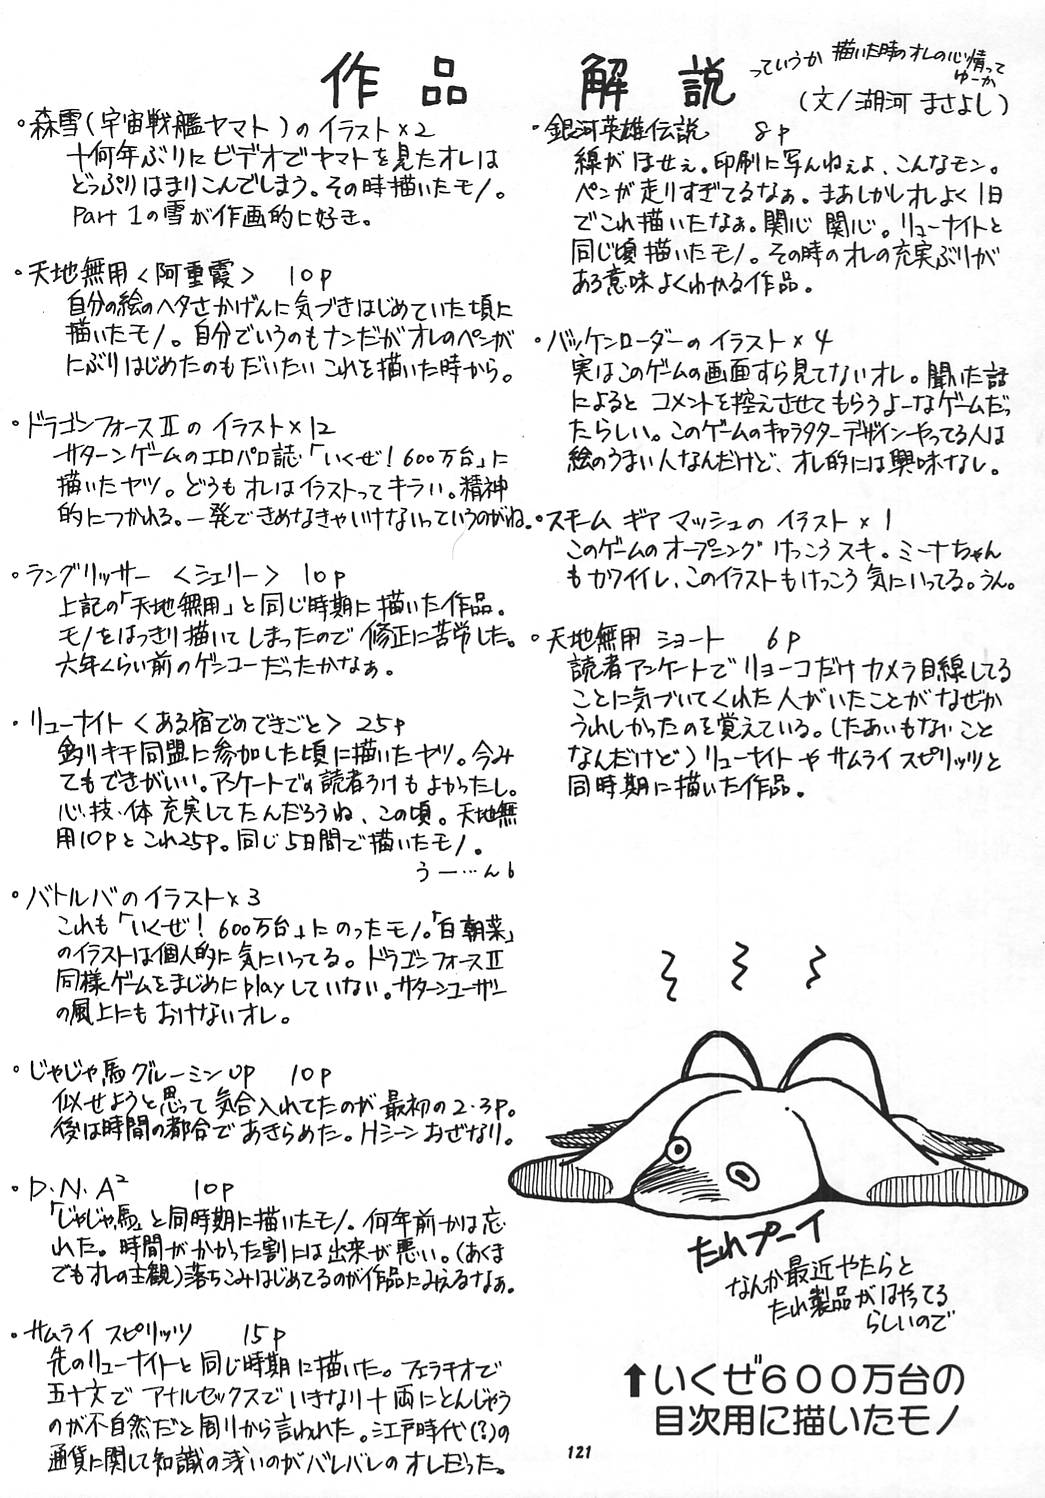 作品 解説
っていうか 描いた時のオレの心情って
ゆーか
(文/湖河 まさよし)
・森雪(宇宙戦艦ヤマト)のイラスト×2
十何年ぶりにビデオでヤマトを見たオレは
どっぷりはまりこんでしまう。その時描いたモノ。
Part 1の雪が作画的に好き。
・天地無用<阿重霞> 10p
自分の絵のヘタさかげんに気づきはじめていた頃に
描いたモノ。自分でいうのもナンだがオレのペンが
にぶりはじめたのもだいたいこれを描いた時から。
・ドラゴンフォースⅡの イラスト×12
サターンゲームのエロパロ誌・「いくぜ!600万台」に
描いたヤツ。どうもオレはイラストってキラい。精神
的につかれる。一発できめなきゃいけないっていうのがね。
・ラングリッサー <シェリー> 10p
上記の「天地無用」と同じ時期に描いた作品。
モノをはっきり描いてしまったので修正に苦労した。
六年くらい前のゲンコーだったかなぁ。
・リューナイト<ある宿でのできごと> 25p
釣りキチ同盟に参加した頃に描いたヤツ。今み
てもできがいい。アンケートでの読者うけもよかったし。
心・技・体 充実してたんだろうね、この頃。天地無
用10pとこれ25p。同じ5日間で描いたモノ。
うー…ん6
・バトルバのイラスト×3
これも「いくぜ!600万台」にのったモノ。「白朝菜」
のイラストは個人的に気にいってる。ドラゴンフォースⅡ
同様ゲームをまじめにplayしていない。サターンユーザー
の風上にもおけないオレ。
・じゃじゃ馬グルーミンUP 10p
似せようと思って気合入れてたのが最初の2・3p。
後は時間の都合であきらめた。Hシーンおざなり。
・D・N・A² 10p
「じゃじゃ馬」と同時期に描いたモノ。何年前かは忘
れた。時間がかかった割には出来が悪い。(あくま
でもオレの主観)落ちこみはじめてるのが作品にみえるなぁ。
・サムライ スピリッツ 15p
先のリューナイトと同じ時期に描いた。フェラチオで
五十文でアナルセックスでいきなり十両にとんじゃう
のが不自然だと周りから言われた。江戸時代(?)の
通貨に関して知識の浅いのがバレバレのオレだった。
・銀河英雄伝説 8p
線がほせぇ。印刷に写んねぇよ、こんなモン。
ペンが走りすぎてるなぁ。まあしかしオレよく1日
でこれ描いたなぁ。関心 関心。リューナイトと
同じ頃描いたモノ。その時のオレの充実ぶりが
ある意味よくわかる作品。
・バッケンローダーのイラスト×4
実はこのゲームの画面すら見てないオレ。聞いた話
によると コメントを控えさせてもらうよーなゲームだっ
たらしい。このゲームのキャラクターデザインやってる人は
絵のうまい人なんだけど、オレ的には興味なし。
・スチーム ギア マッシュの イラスト×1
このゲームのオープニングけっこうスキ。ミーナちゃん
もカワイイし、このイラストもけっこう気にいってる。うん。
・天地無用 ショート 6p
読者アンケートでリョーコだけカメラ目線してる
ことに気づいてくれた人がいたことがなぜか
うれしかったのを覚えている。(たあいもないこと
なんだけど)リューナイトやサムライスピリッツと
同時期に描いた作品。
たれプーイ
なんか最近やたらと
たれ製品がはやってる
らしいので
↑いくぜ600万台の
目次用に描いたモノ
121